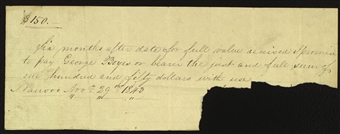 $150.
Six months after date for full value received I promise
to pay George Boyes or bearer the just and full sum of
one hundred and fifty dollars with use
Nov 29th 1843